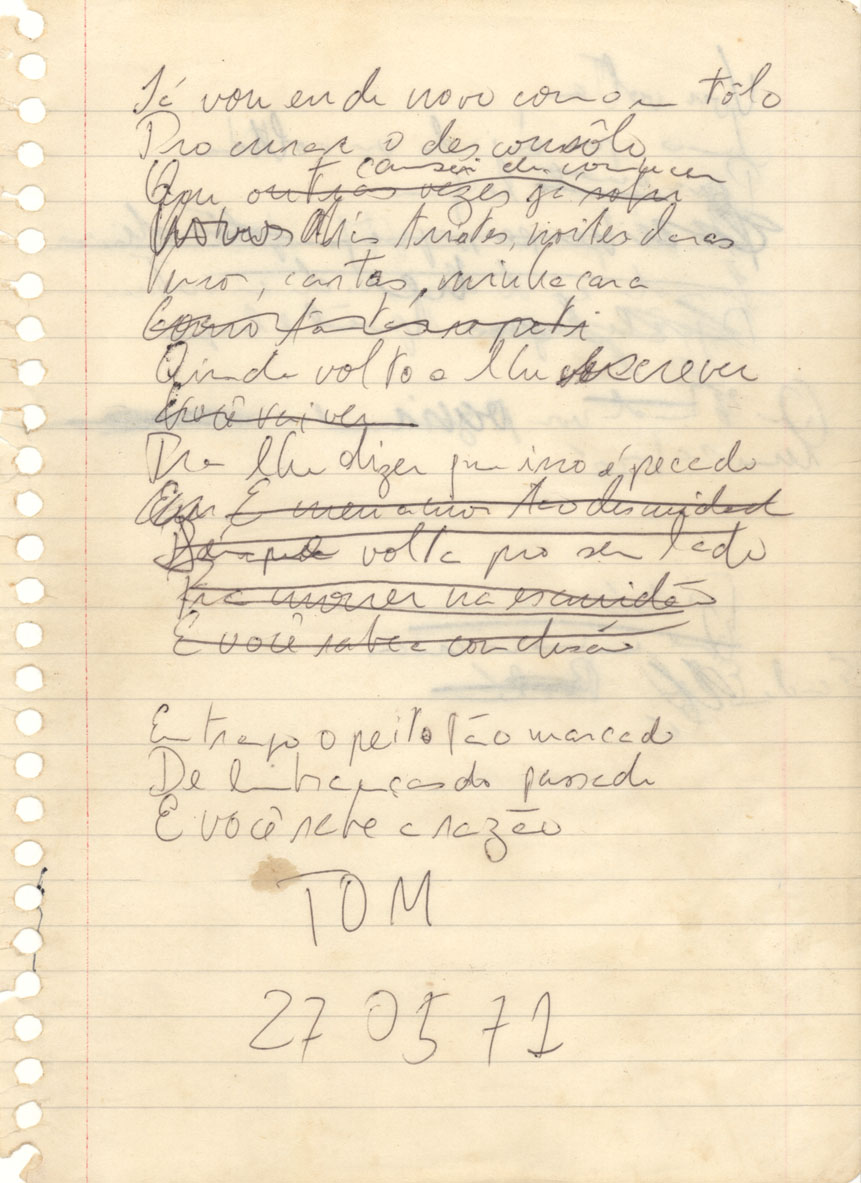 Lá vou eu de novo como um tôlo
Procurar o desconsôlo
cansei de conhecer
Que outras vezes já sofri
Novos dias tristes, noites claras
Verso, cartas, minha cara
Como tantas repeti
Ainda volto a lhe escrever
Você vai ver
Pra lhe dizer que isso é pecado
E meu amor tão descuidad
volta pro seu lado
Pra morrer na escuridão
E você sabe a conclusão
Eu trago o peito tão marcado
De lembranças do passado
E você sabe a razão
TOM
27 05 71